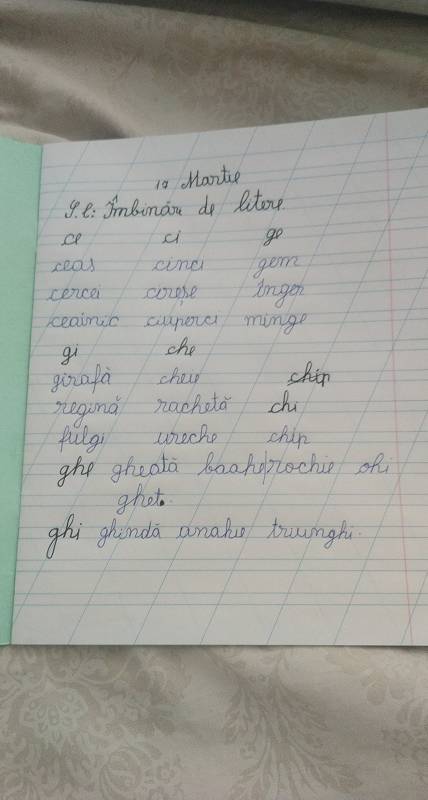 17 Martie
S.C: Îmbinări de litere.
ce ci ge
ceas cinci gem
cercei cireșe înger
ceainic ciuperci minge
gi che
girafă cheie chip
regină rachetă chi
fulgi ureche chip
ghe gheată rochie ohi
ghet.
ghi ghindă anahie triunghi.